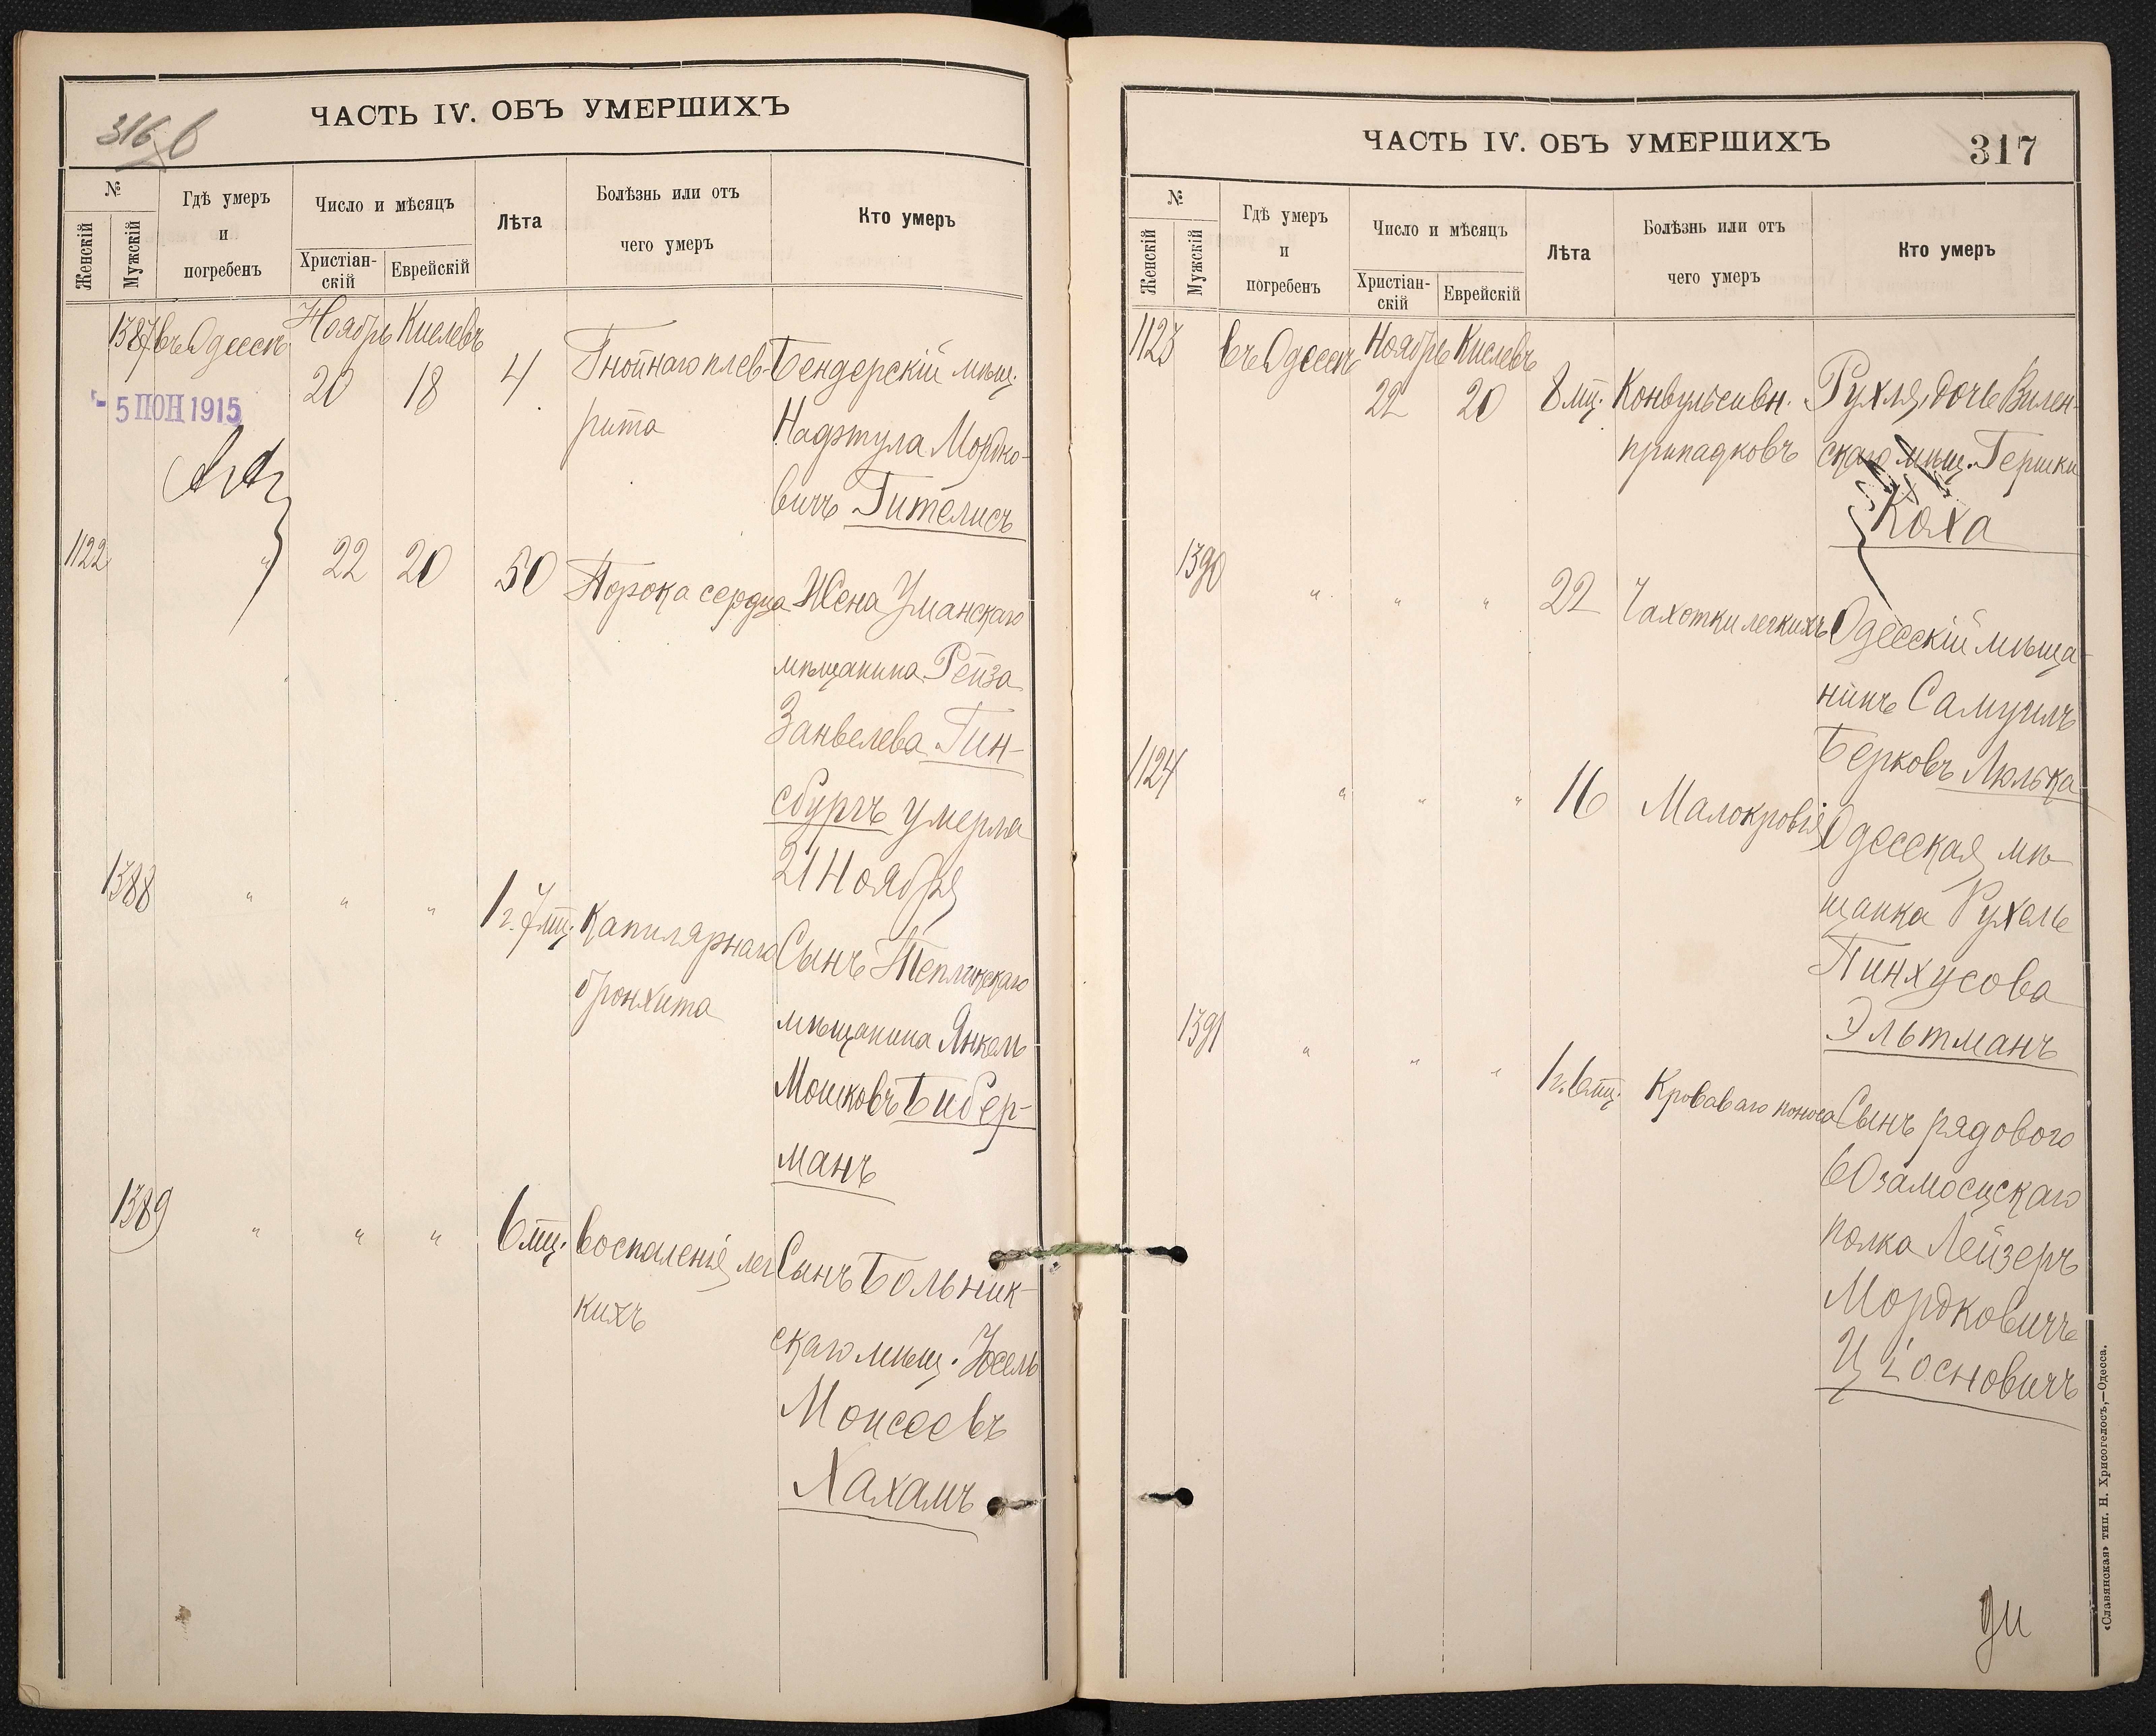 316 б
ЧАСТЬ IV. ОБЪ УМЕРШИХЪ
№
Женскій
Мужскій
Гдѣ умеръ
и
погребенъ
Число и мѣсяцъ
Христіан-
скій
Еврейскій
Лѣта
Болѣзнь или отъ
чего умеръ
Кто умеръ
1387 въ Одессѣ Ноябрь Кислевъ
20 18 4 Гнойнаго плев- Бендерскій мѣщ.
- 5 ІЮН 1915
рита Нафтула Мордко-
вичъ Гителисъ
1122 " 22 20 50 Порока сердца Жена Уманскаго
мѣщанина Рейза
Занвелева Гин-
сбургъ умерла
21 Ноября
1388 " " " 1 г. 7 мц. Капилярнаго Сынъ Тепликскаго
бронхита мѣщанина Янкель
Мошковъ Бибер-
манъ
1389 " " " 6 мц. Воспаленія лег Сынъ Больник-
кихъ скаго мѣщ. Іосель
Моисеевъ
Хахамъ
ЧАСТЬ IV. ОБЪ УМЕРШИХЪ
317
№
Женскій
Мужскій
Гдѣ умеръ
и
погребенъ
Число и мѣсяцъ
Христіан-
скій
Еврейскій
Лѣта
Болѣзнь или отъ
чего умеръ
Кто умеръ
1123 въ Одессѣ Ноябрь Кислевъ
22 20 8 мц. Конвульсивн. Рухля, дочь Вилен-
припадковъ скаго мѣщ. Гершки
Коха
1390 " " " 22 Чахотки легкихъ Одесскій мѣща-
нинъ Самуилъ
Берковъ Люлька
1124 " " " 16 Малокровія Одесская мѣ-
щанка Рухель
Пинхусова
Эльтманъ
1391 " " " 1 г. 6 мц. Кроваваго поноса Сынъ рядового
60 замосцскаго
полка Лейзеръ
Мордковичъ
Ціосновичъ
«Славянская» тип. Н. Хрисогелосъ,—Одесса.